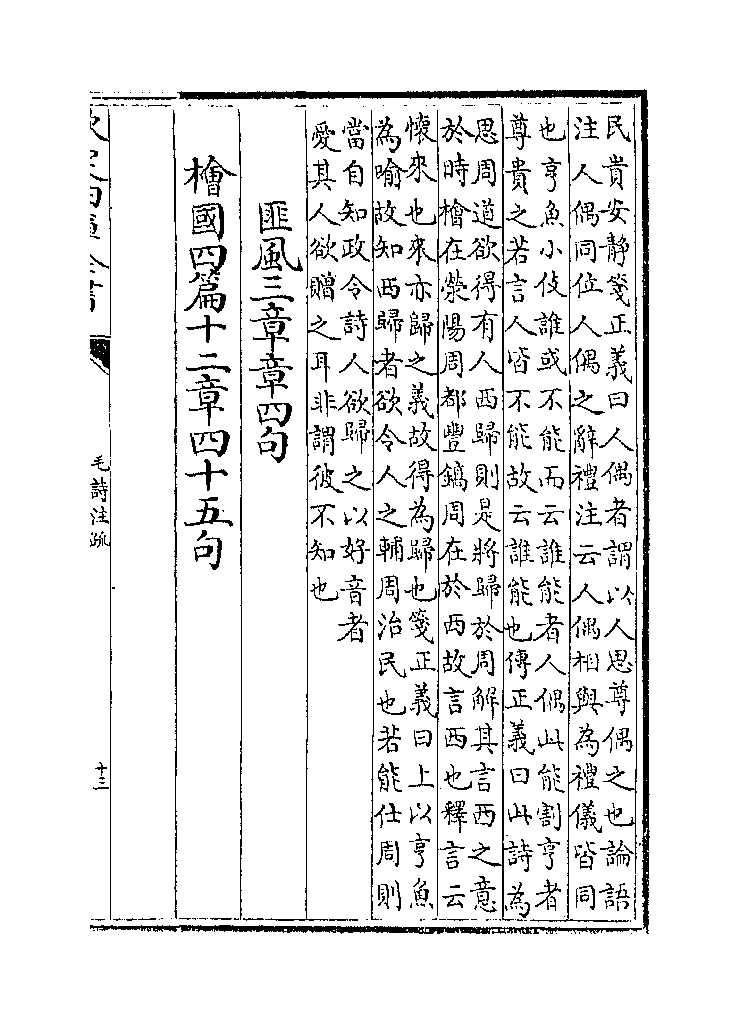 民貴安靜箋正義曰人偶者謂以人思尊偶之也論語
注人偶同位人偶之辭禮注云人偶相與為禮儀皆同
也亨魚小伎誰或不能而云誰能者人偶此能割亨者
尊貴之若言人皆不能故云誰能也傳正義曰此詩為
思周道欲得有人西歸則是將歸於周解其言西之意
於時檜在滎陽周都豐鎬周在於西故言西也釋言云
懷來也來亦歸之義故得為歸也箋正義曰上以亨魚
為喻故知西歸者欲令人之輔周治民也若能仕周則
當自知政令詩人欲歸之以好音者
愛其人欲贈之耳非謂彼不知也
匪風三章章四句
檜國四篇十二章四十五句
欽定四庫全書
毛詩注疏
十三